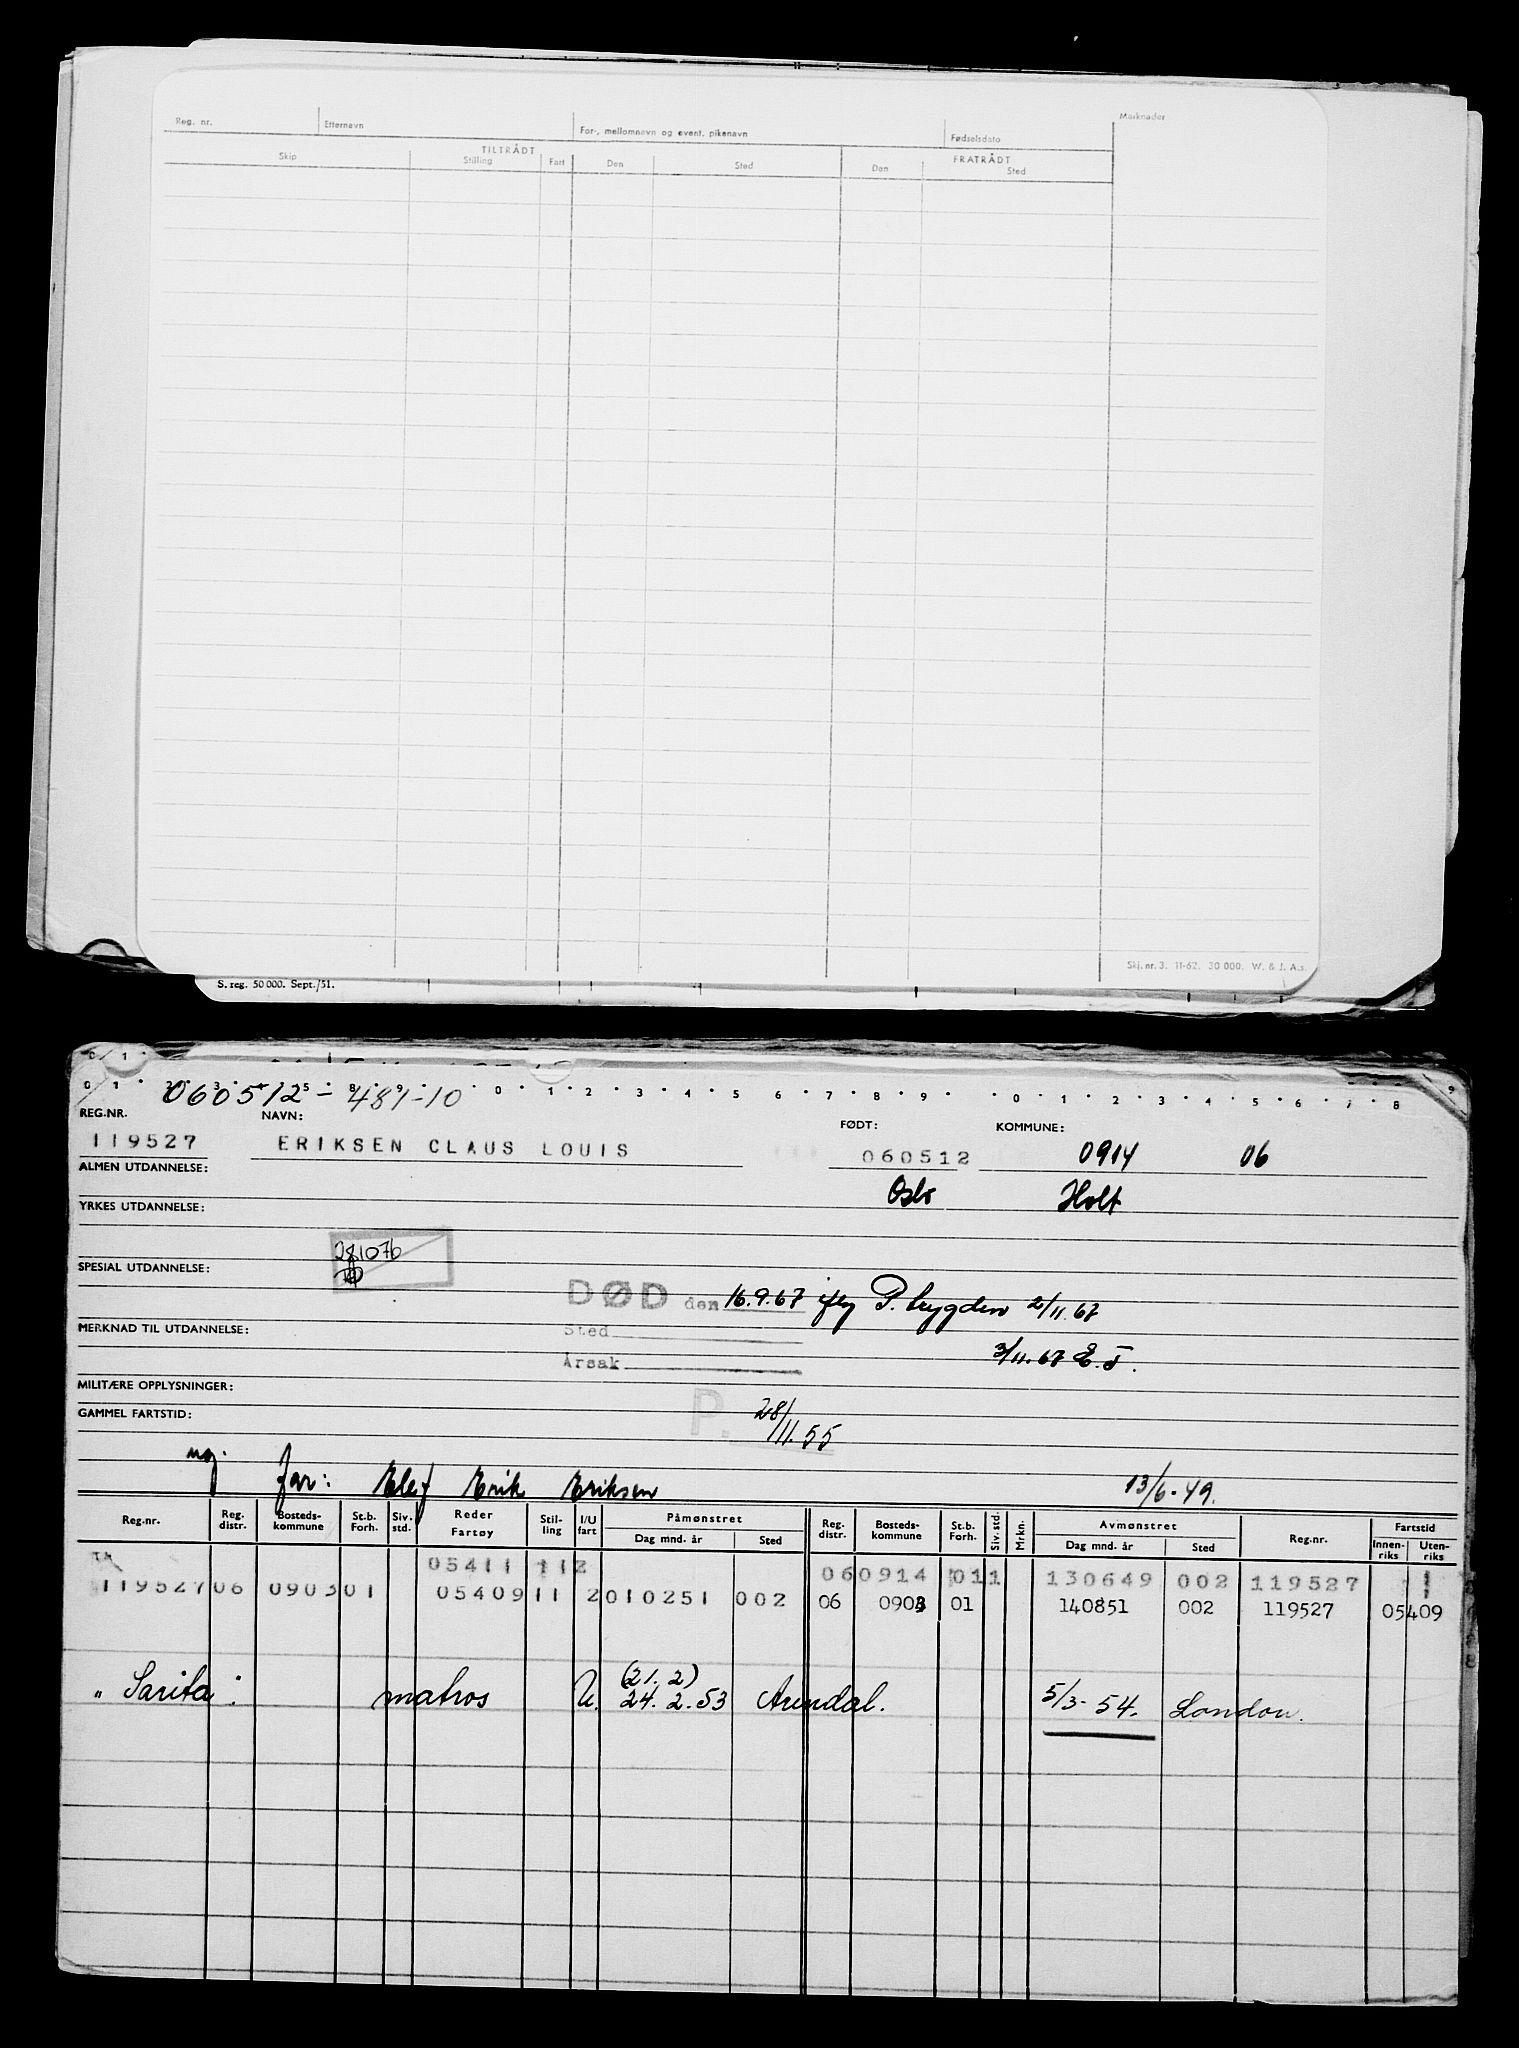 Reg. nr. Etternavn For-, mellomnavn og event. pikenavn Fødselsdato Marknader
TILTRÅDT FRATRÅDT
Skip Stilling Fart Den Sted Den Sted
Skj. nr. 3. 11-62. 30 000. W. & J. A.s.
S. reg. 50 000. Sept./51.
060512 - 481-10
REG.NR. NAVN: FØDT: KOMMUNE:
119527 ERIKSEN CLAUS LOUIS 060512 0914 06
ALMEN UTDANNELSE:
Oslo Holt
YRKES UTDANNELSE:
281076
SPESIAL UTDANNELSE:
DØD den 16.9.67 iflg P. trygden 2/11.67
MERKNAD TIL UTDANNELSE: Sted
Årsak 3/11.67 E.T.
MILITÆRE OPPLYSNINGER:
GAMMEL FARTSTID: P. 28/11.55
Far: Erik Eriksen 13/6-49.
Reg.nr. Reg. distr. Bosteds-kommune St.b. Forh. Siv. std. Reder Fartøy Stil-ling I/U fart Påmønstret Dag mnd. år Sted Reg. distr. Bosteds-kommune St.b. Forh. Siv. std. Mrkn. Avmønstret Dag mnd. år Sted Reg.nr. Fartstid Innen-riks Uten-riks
05411 112 060914 011 130649 002 119527
119527 06 0903 01 05409 11 2 010251 002 06 0903 01 140851 002 119527 05409
(21. 2)
"Sarita". matros U. 24. 2. 53 Arendal. 5/3-54. London.